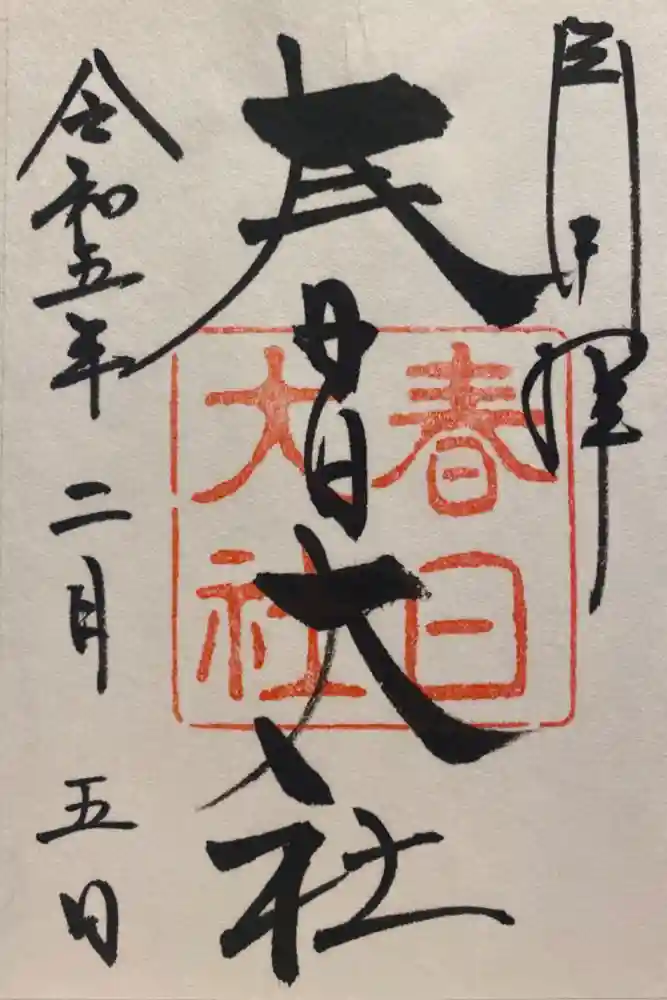 拝
春日大社
令和五年 二月 五日
春日
大社